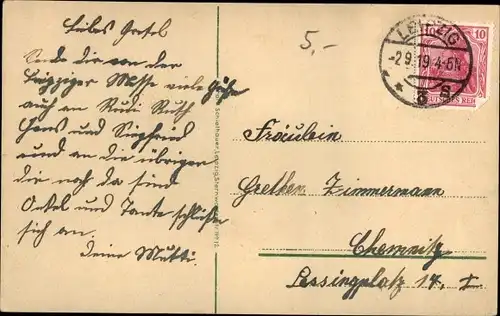 Liebes Gretel
Sende Dir von der
Leipziger Messe viele Grüße
auch an Rudi Ruth
Hans und Siegfried
und an die übrigen
die noch da sind
Onkel und Tante schließen
sich an.
Deine Mutti.
5,-
LEIPZIG
-2.9.19.4-5N
* *
8
10
DEUTSCHES REICH
Fräulein
Grethen Zimmermann
Chemnitz
Lessingplatz 14. I.